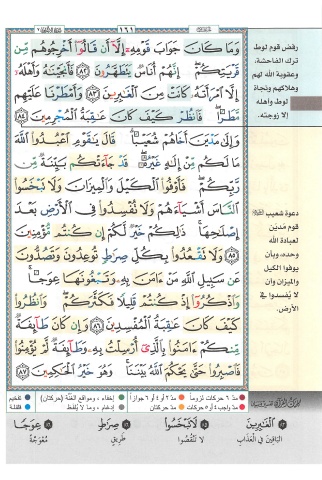 ١٦١
وَمَا كَانَ جَوَابَ قَوْمِهِۦٓ إِلَّآ أَن قَالُوٓا۟ أَخْرِجُوهُم مِّن
قَرْيَتِكُمْ ۖ إِنَّهُمْ أُنَاسٌ يَتَطَهَّرُونَ ٨٢ فَأَنجَيْنَٰهُ وَأَهْلَهُۥٓ
إِلَّا ٱمْرَأَتَهُۥ كَانَتْ مِنَ ٱلْغَٰبِرِينَ ٨٣ وَأَمْطَرْنَا عَلَيْهِم
مَّطَرًا ۖ فَٱنظُرْ كَيْفَ كَانَ عَٰقِبَةُ ٱلْمُجْرِمِينَ ٨٤
وَإِلَىٰ مَدْيَنَ أَخَاهُمْ شُعَيْبًا ۗ قَالَ يَٰقَوْمِ ٱعْبُدُوا۟ ٱللَّهَ
مَا لَكُم مِّنْ إِلَٰهٍ غَيْرُهُۥ ۖ قَدْ جَآءَتْكُم بَيِّنَةٌ مِّن
رَّبِّكُمْ ۖ فَأَوْفُوا۟ ٱلْكَيْلَ وَٱلْمِيزَانَ وَلَا تَبْخَسُوا۟
ٱلنَّاسَ أَشْيَآءَهُمْ وَلَا تُفْسِدُوا۟ فِى ٱلْأَرْضِ بَعْدَ
إِصْلَٰحِهَا ۚ ذَٰلِكُمْ خَيْرٌ لَّكُمْ إِن كُنتُم مُّؤْمِنِينَ
٨٥ وَلَا تَقْعُدُوا۟ بِكُلِّ صِرَٰطٍ تُوعِدُونَ وَتَصُدُّونَ
عَن سَبِيلِ ٱللَّهِ مَنْ ءَامَنَ بِهِۦ وَتَبْغُونَهَا عِوَجًا ۚ
وَٱذْكُرُوٓا۟ إِذْ كُنتُمْ قَلِيلًا فَكَثَّرَكُمْ ۖ وَٱنظُرُوا۟
كَيْفَ كَانَ عَٰقِبَةُ ٱلْمُفْسِدِينَ ٨٦ وَإِن كَانَ طَآئِفَةٌ
مِّنكُمْ ءَامَنُوا۟ بِٱلَّذِىٓ أُرْسِلْتُ بِهِۦ وَطَآئِفَةٌ لَّمْ يُؤْمِنُوا۟
فَٱصْبِرُوا۟ حَتَّىٰ يَحْكُمَ ٱللَّهُ بَيْنَنَا ۚ وَهُوَ خَيْرُ ٱلْحَٰكِمِينَ ٨٧
رفض قوم لوط
ترك الفاحشة،
وعقوبة الله لهم
وهلاكهم ونجاة
لوط وأهله
إلا زوجته.
دعوة شعيب
قوم مدين
لعبادة الله
وحده، وبأن
يوفوا الكيل
والميزان وأن
لا يفسدوا في
الأرض.
مد ٦ حركات لزوماً مد ٢ أو ٤ أو ٦ جوازاً إخفاء، ومواقع الغنة (حركتان) تفخيم
مد واجب ٤ أو ٥ حركات مد حركتان إدغام، وما لا يلفظ قلقلة
٨٣ الْغَابِرِينَ ٨٥ لَا تَبْخَسُوا ٨٦ صِرَاطٍ ٨٦ عِوَجًا
الباقين في العذاب لا تنقصوا طريق معوجة